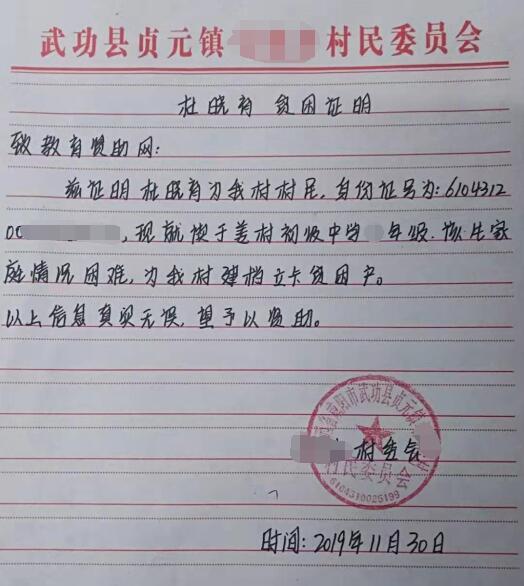 武功县贞元镇 村民委员会
杜晓育 贫困证明
致教育资助网:
兹证明杜晓育为我村村民,身份证号为:6104312
00 ,现就读于姜村初级中学 年级.该生家
庭情况困难,为我村建档立卡贫困户。
以上信息真实无误,望予以资助。
咸阳市武功县贞元镇
村委会
村民委员会
6104310025199
时间:2019年11月30日